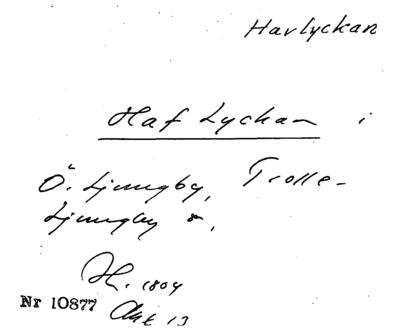 Havlyckan
Haf Lyckan i
Ö. Ljungby, Trolle-
Ljungby s,
H. 1804
Nr 10877 Akt 13